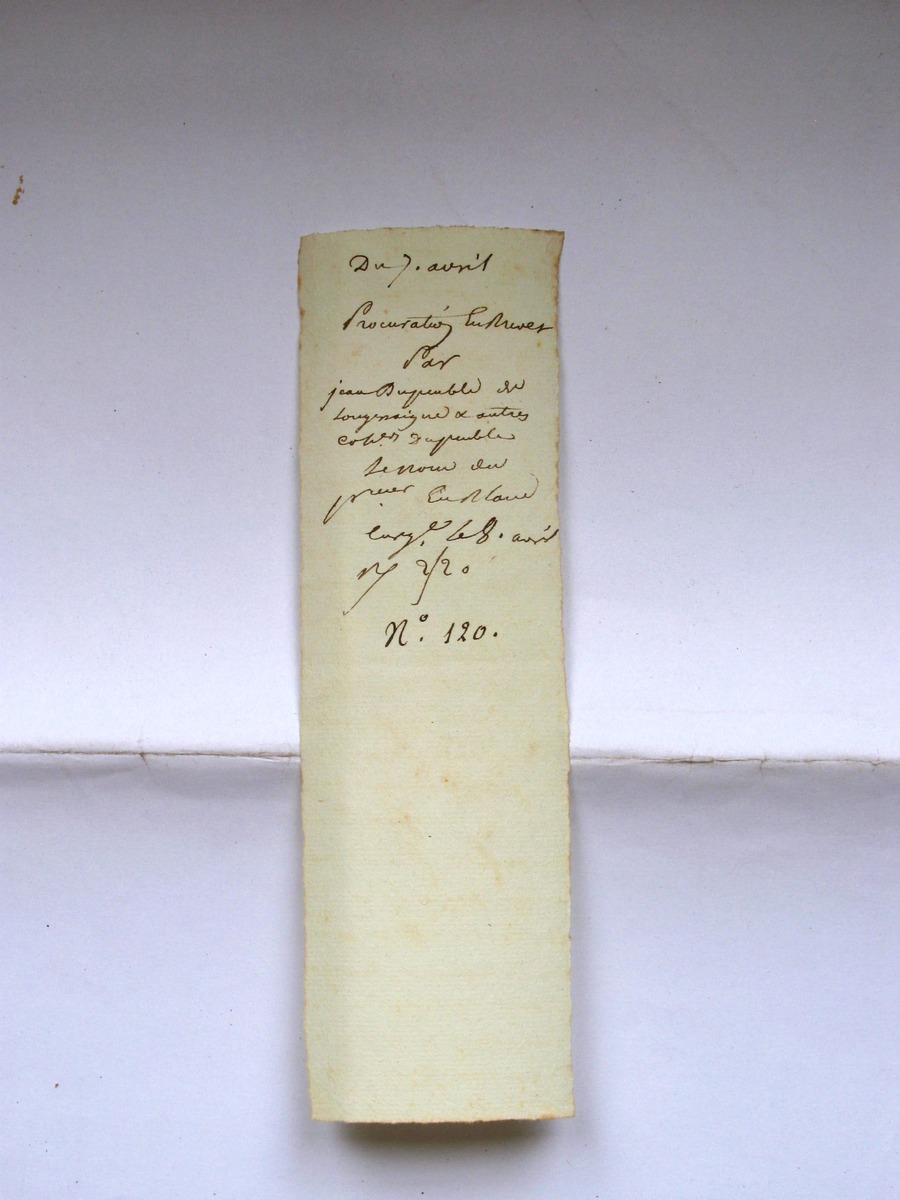 Du 7. avril
Procuration En Brevet
Par
jean Dupeuble de
Longessaigne & autres
coh.ers Dupeuble
Le nom du
p.mier En Blanc
Enreg.é le 8. avril
R 2/20
N.º 120.